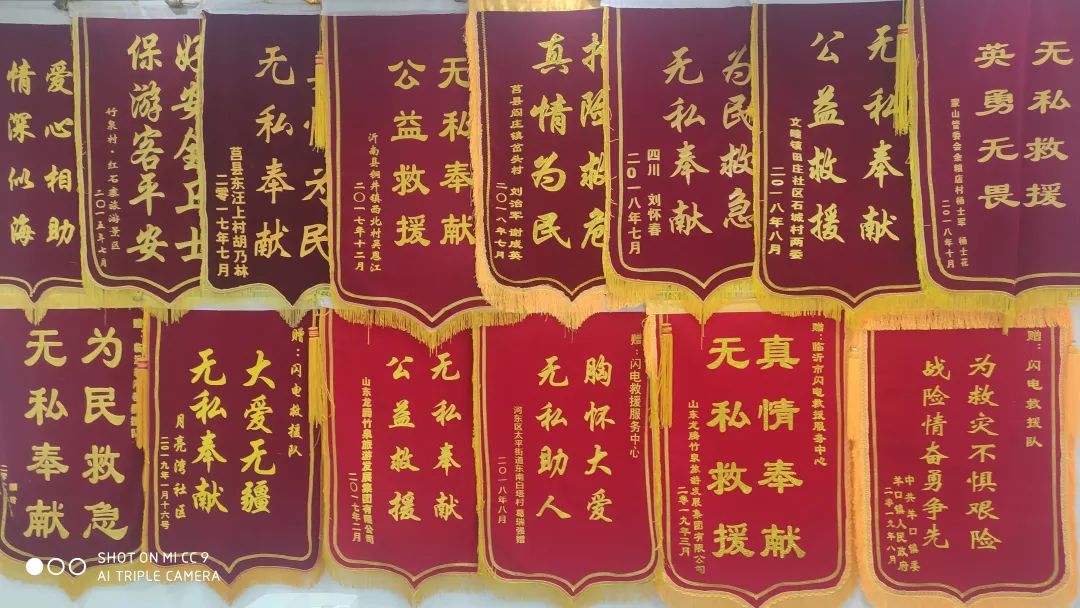 爱心相助
情深似海
好安全卫士
保游客平安
竹泉村·红石寨旅游景区
二〇一五年七月
为民
无私奉献
莒县东汪上村胡乃林
二零一七年七月
无私奉献
公益救援
沂南县铜井镇西北村吴恩江
二〇一七年十二月
抢险救危
真情为民
莒县阎庄镇岔头村 刘治军 谢成英
二〇一八年七月
为民救急
无私奉献
四川 刘怀春
二〇一八年七月
无私奉献
公益救援
文疃镇田庄社区石城村两委
二〇一八年八月
无私救援
英勇无畏
蒙山管委会余粮店村杨士军 杨士花
二〇一八年十月
为民救急
无私奉献
赠：闪电救援队
大爱无疆
无私奉献
月亮湾社区
二〇一九年一月十六号
无私奉献
公益救援
山东龙腾竹泉旅游发展集团有限公司
二〇一七年二月
赠：闪电救援服务中心
胸怀大爱
无私助人
河东区太平街道东南白塔村 葛瑞强赠
二〇一八年八月
赠：临沂市闪电救援服务中心
真情奉献
无私救援
山东龙腾竹泉旅游发展集团有限公司
二零一九年三月
赠：闪电救援队
为救灾不惧艰险
战险情奋勇争先
中共羊口镇委
羊口镇人民政府
二零一九年八月
SHOT ON MI CC9
AI TRIPLE CAMERA